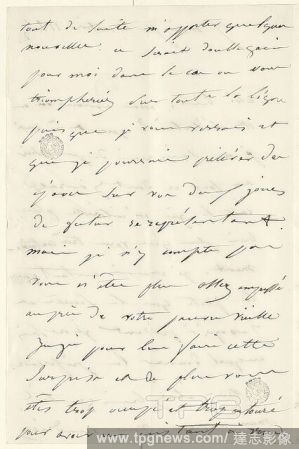 tout de suite m'apporter quelque
nouvelle. ce serait double gain
pour moi dans le cas ou vous
triompheriez sur toute la ligne
puisque je vous verrais et
que je pourrais prélever du
sur vos deux joues
de futur représentant.
mais je n'y compte pas
vous n'êtes plus assez empressé
auprès de votre pauvre vieille
pour lui faire cette
surprise et de plus vous
êtes trop occupé et trop
pour avoir un instant à
TPG
www.tpgnews.com/達志影像